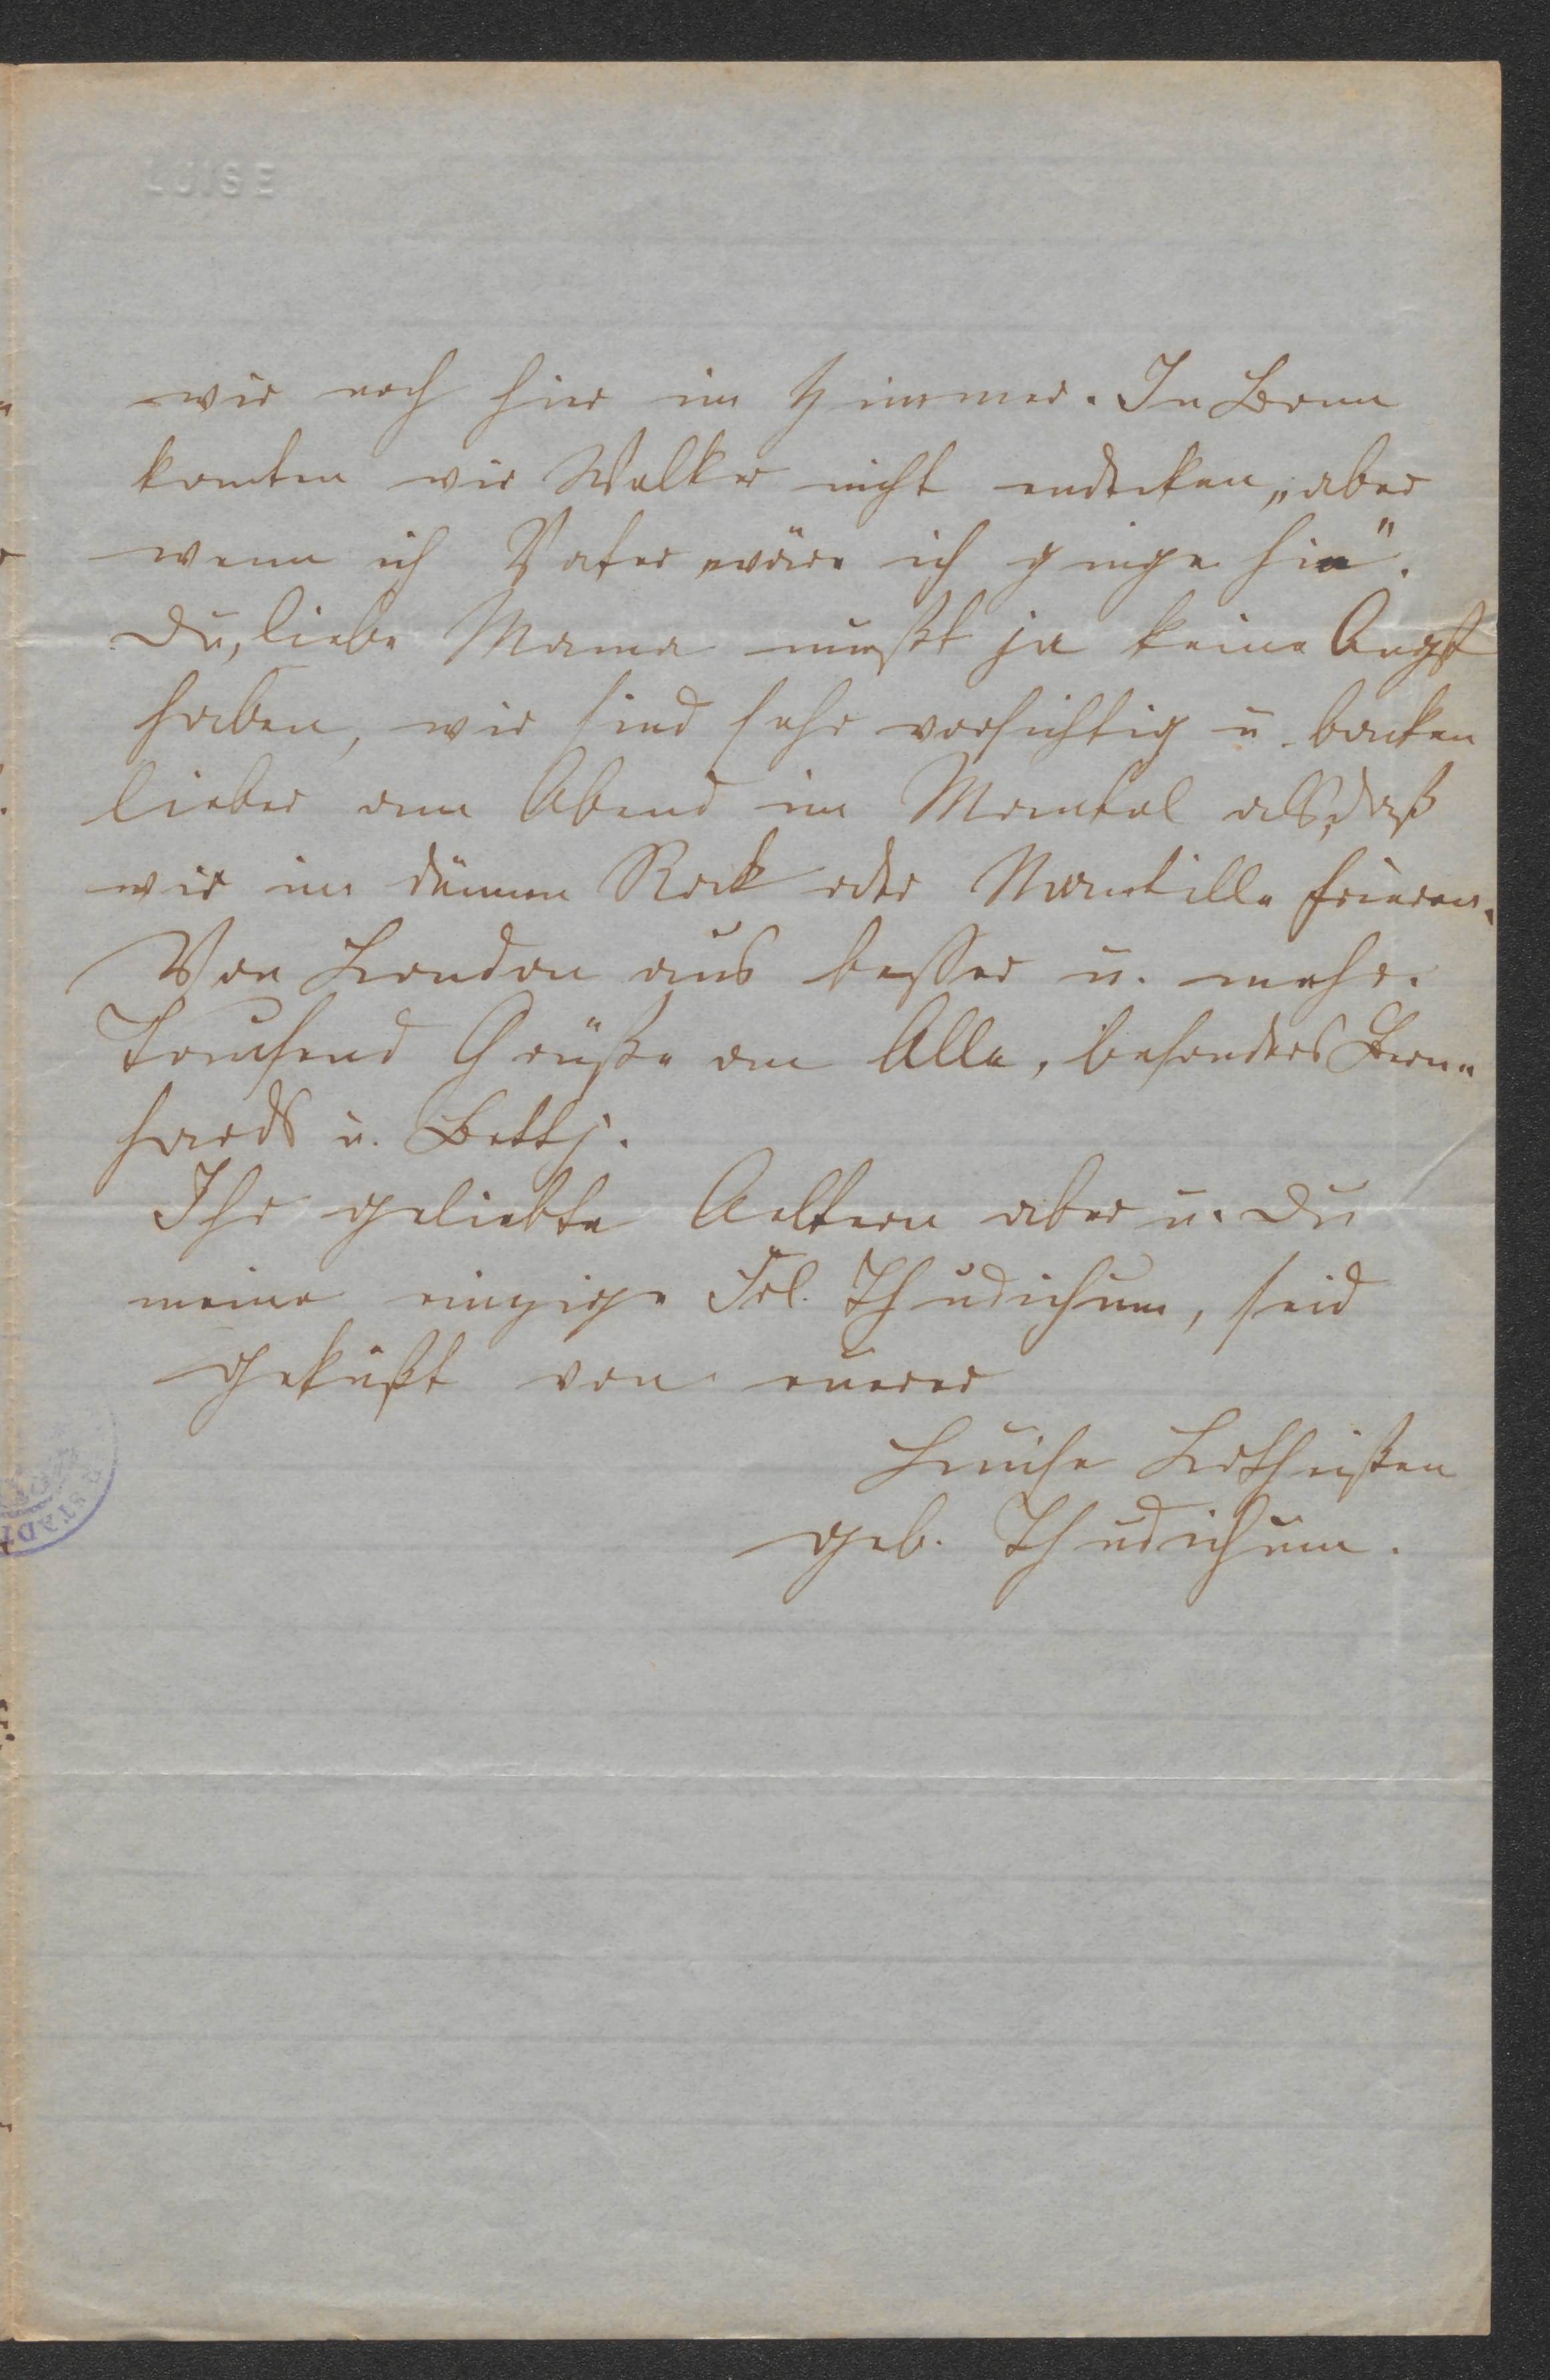 LUISE
wir noch hier im Zimmer. In Bonn
konnten wir Walker nicht endecken, „aber
wenn ich Vater wäre ich ginge hin".
Du, liebe Mama mußt ja keine Angst
haben, wir sind sehr vorsichtig u.
lieber am Abend im Mantel als daß
wir im dünnen Rock oder Mantille frieren.
Von London aus besser u. mehr.
Tausend Grüße an Alle, besonders Bern„
hards u. Bettj.
Ihr geliebte Aeltern aber u. Du
meine einzige Frl. Thudichum, seid
geküßt von euerer
Luise Lotheißen
geb. Thudichum.